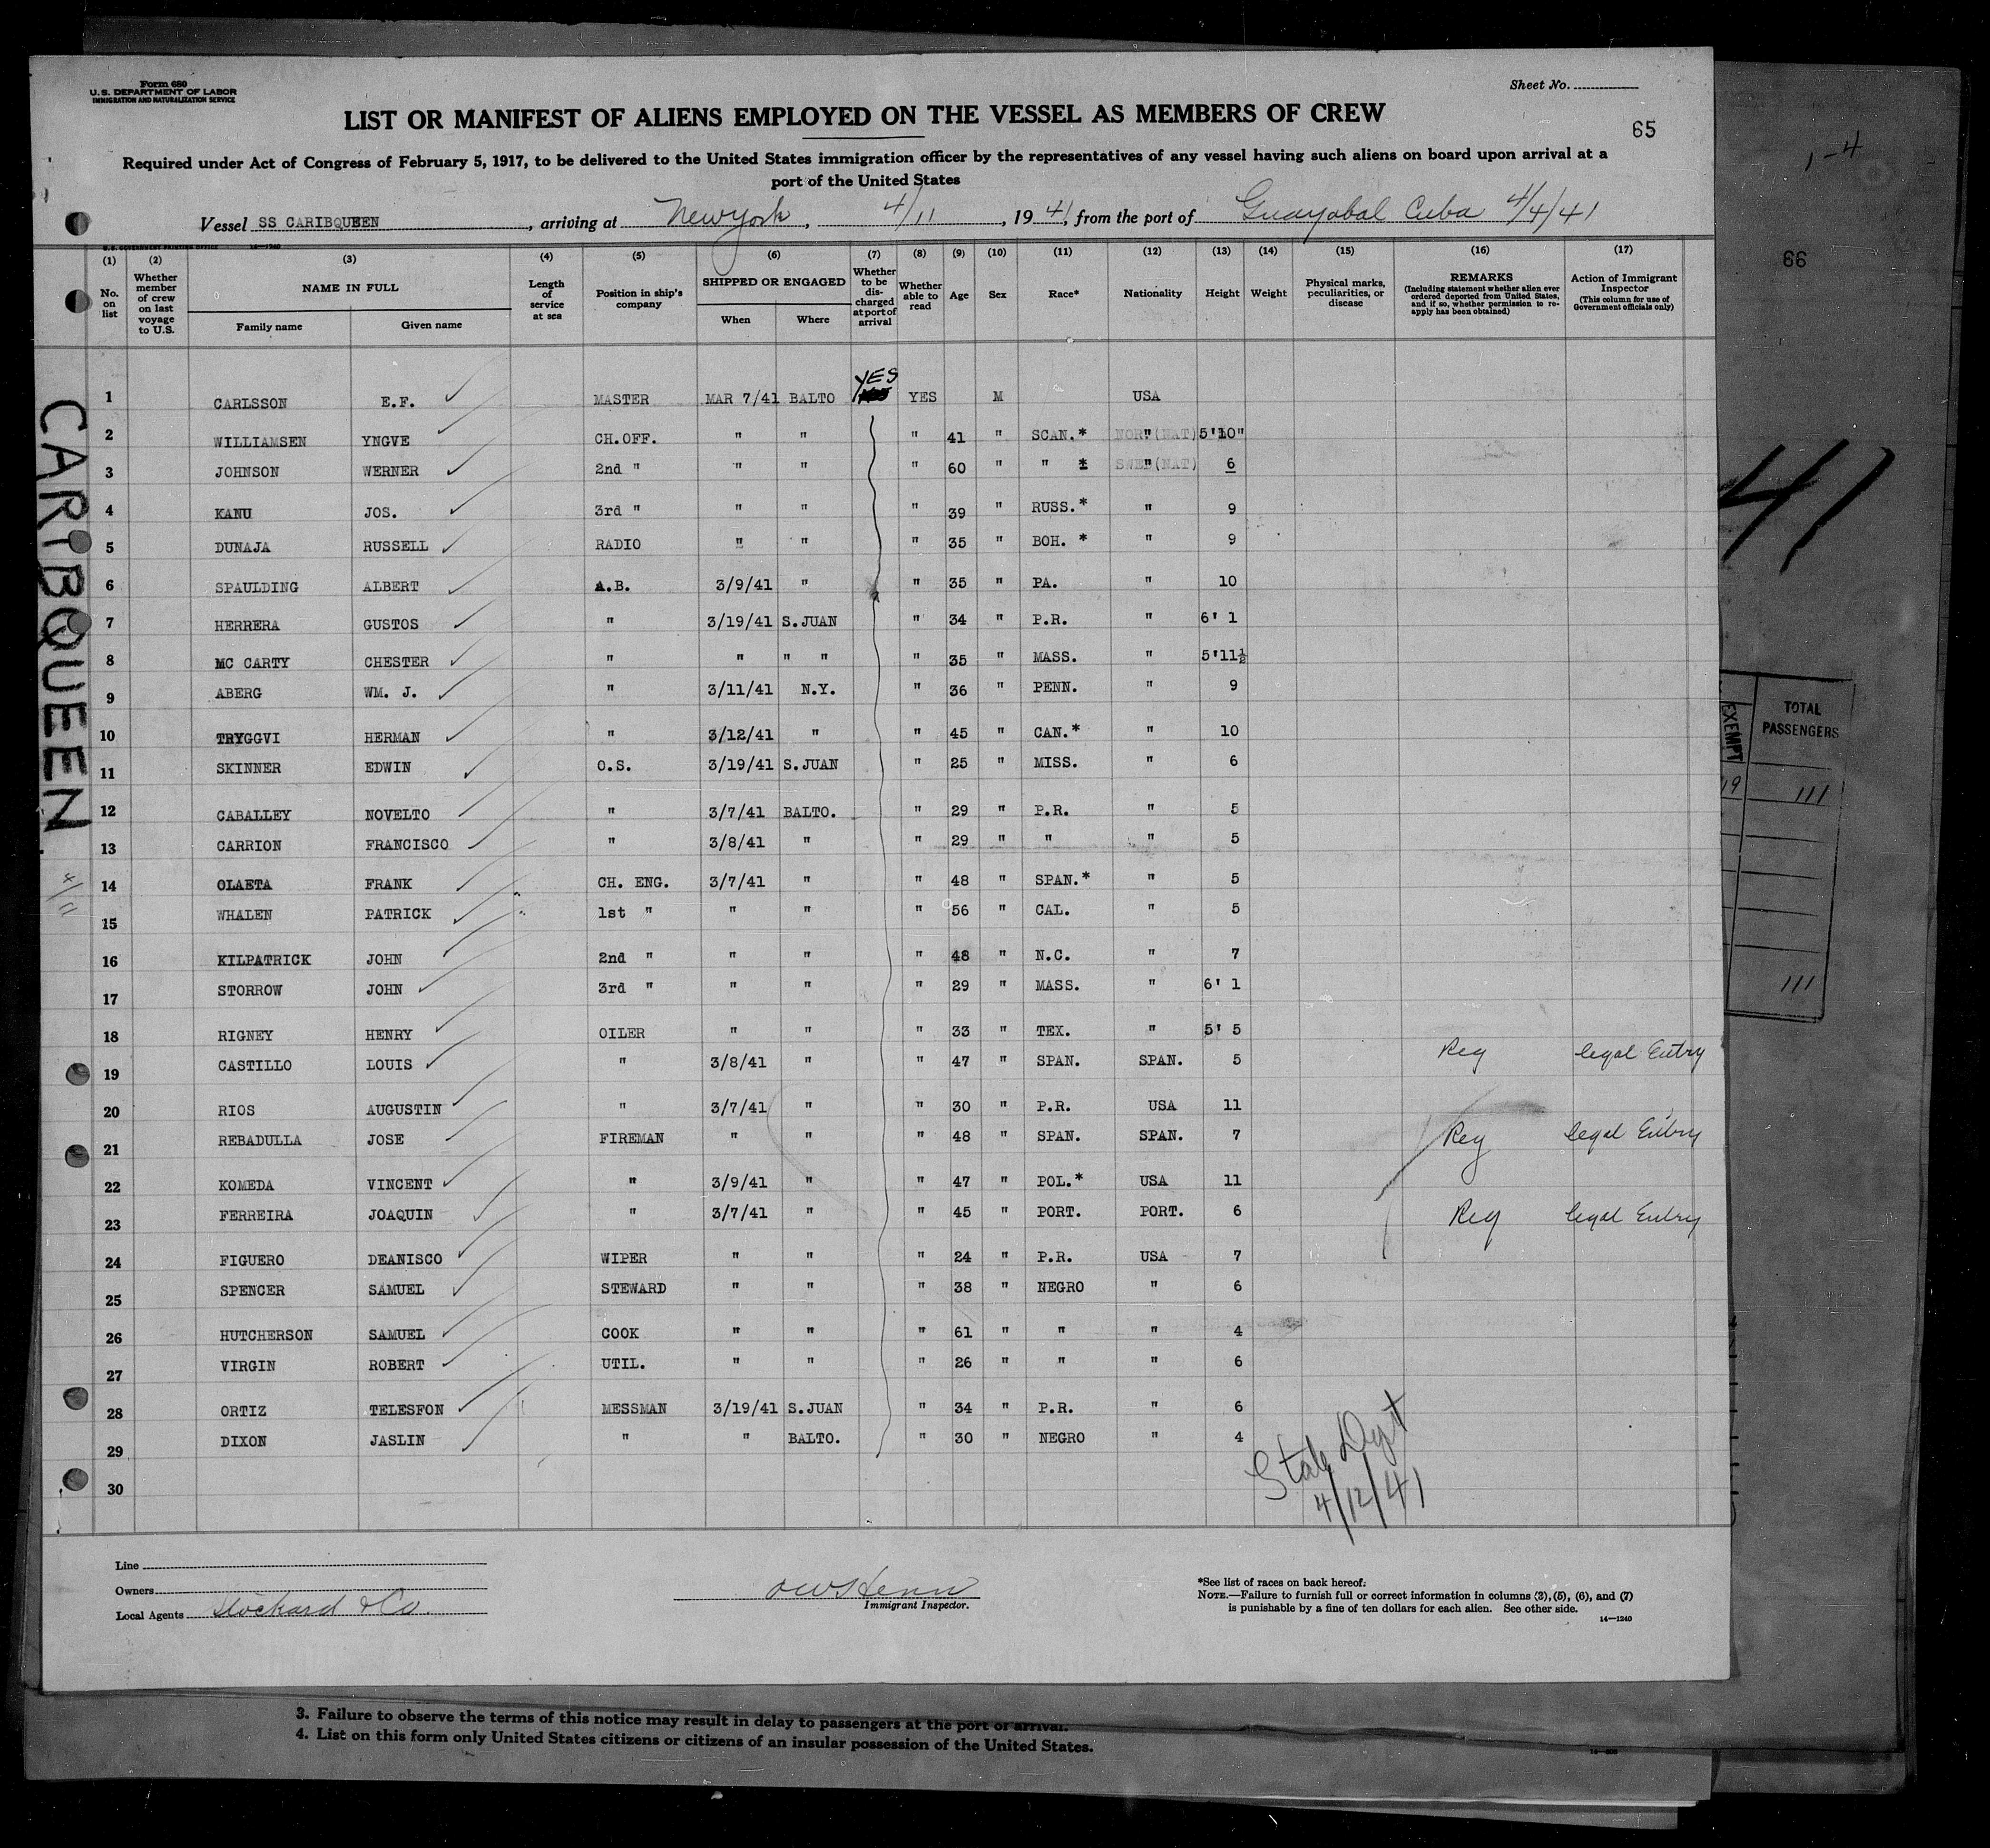 Form 680
U.S. DEPARTMENT OF LABOR
IMMIGRATION AND NATURALIZATION SERVICE
Sheet No.
LIST OR MANIFEST OF ALIENS EMPLOYED ON THE VESSEL AS MEMBERS OF CREW
65
Required under Act of Congress of February 5, 1917, to be delivered to the United States immigration officer by the representatives of any vessel having such aliens on board upon arrival at a
port of the United States
Vessel SS CARIBQUEEN, arriving at New York, 4/11, 1941, from the port of Guayabal Cuba 4/4/41
U.S. GOVERNMENT PRINTING OFFICE 14—1240
(1) (2) (3) (4) (5) (6) (7) (8) (9) (10) (11) (12) (13) (14) (15) (16) (17)
No. on list
Whether member of crew on last voyage to U.S.
NAME IN FULL
Family name Given name
Length of service at sea
Position in ship's company
SHIPPED OR ENGAGED
When Where
Whether to be discharged at port of arrival
Whether able to read
Age
Sex
Race*
Nationality
Height
Weight
Physical marks, peculiarities, or disease
REMARKS
(Including statement whether alien ever ordered deported from United States, and if so, whether permission to reapply has been obtained)
Action of Immigrant Inspector
(This column for use of Government officials only)
1 CARLSSON E.F. MASTER MAR 7/41 BALTO YES YES M USA
2 WILLIAMSEN YNGVE CH.OFF. " " " 41 " SCAN.* " 5'10"
3 JOHNSON WERNER 2nd " " " " 60 " " * " 6
4 KANU JOS. 3rd " " " " 39 " RUSS.* " 9
5 DUNAJA RUSSELL RADIO " " " 35 " BOH. * " 9
6 SPAULDING ALBERT A.B. 3/9/41 " " 35 " PA. " 10
7 HERRERA GUSTOS " 3/19/41 S.JUAN " 34 " P.R. " 6' 1
8 MC CARTY CHESTER " " " " " 35 " MASS. " 5'11½
9 ABERG WM. J. " 3/11/41 N.Y. " 36 " PENN. " 9
10 TRYGGVI HERMAN " 3/12/41 " " 45 " CAN.* " 10
11 SKINNER EDWIN O.S. 3/19/41 S.JUAN " 25 " MISS. " 6
12 CABALLEY NOVELTO " 3/7/41 BALTO. " 29 " P.R. " 5
13 CARRION FRANCISCO " 3/8/41 " " 29 " " " 5
14 OLAETA FRANK CH. ENG. 3/7/41 " " 48 " SPAN.* " 5
15 WHALEN PATRICK 1st " " " " 56 " CAL. " 5
16 KILPATRICK JOHN 2nd " " " " 48 " N.C. " 7
17 STORROW JOHN 3rd " " " " 29 " MASS. " 6' 1
18 RIGNEY HENRY OILER " " " 33 " TEX. " 5' 5
19 CASTILLO LOUIS " 3/8/41 " " 47 " SPAN. SPAN. 5 Reg legal Entry
20 RIOS AUGUSTIN " 3/7/41 " " 30 " P.R. USA 11
21 REBADULLA JOSE FIREMAN " " " 48 " SPAN. SPAN. 7 Reg legal Entry
22 KOMEDA VINCENT " 3/9/41 " " 47 " POL.* USA 11
23 FERREIRA JOAQUIN " 3/7/41 " " 45 " PORT. PORT. 6 Reg legal Entry
24 FIGUERO DEANISCO WIPER " " " 24 " P.R. USA 7
25 SPENCER SAMUEL STEWARD " " " 38 " NEGRO " 6
26 HUTCHERSON SAMUEL COOK " " " 61 " " " 4
27 VIRGIN ROBERT UTIL. " " " 26 " " " 6
28 ORTIZ TELESFON MESSMAN 3/19/41 S.JUAN " 34 " P.R. " 6
29 DIXON JASLIN " " BALTO. " 30 " NEGRO " 4
30
State Dept
4/12/41
CARIBQUEEN
4/11
Line
Owners
Local Agents Stockard & Co.
Immigrant Inspector.
*See list of races on back hereof.
NOTE.—Failure to furnish full or correct information in columns (2), (5), (6), and (7)
is punishable by a fine of ten dollars for each alien. See other side.
14—1240
3. Failure to observe the terms of this notice may result in delay to passengers at the port of arrival.
4. List on this form only United States citizens or citizens of an insular possession of the United States.
66
41
EXEMPT
TOTAL PASSENGERS
19 111
111